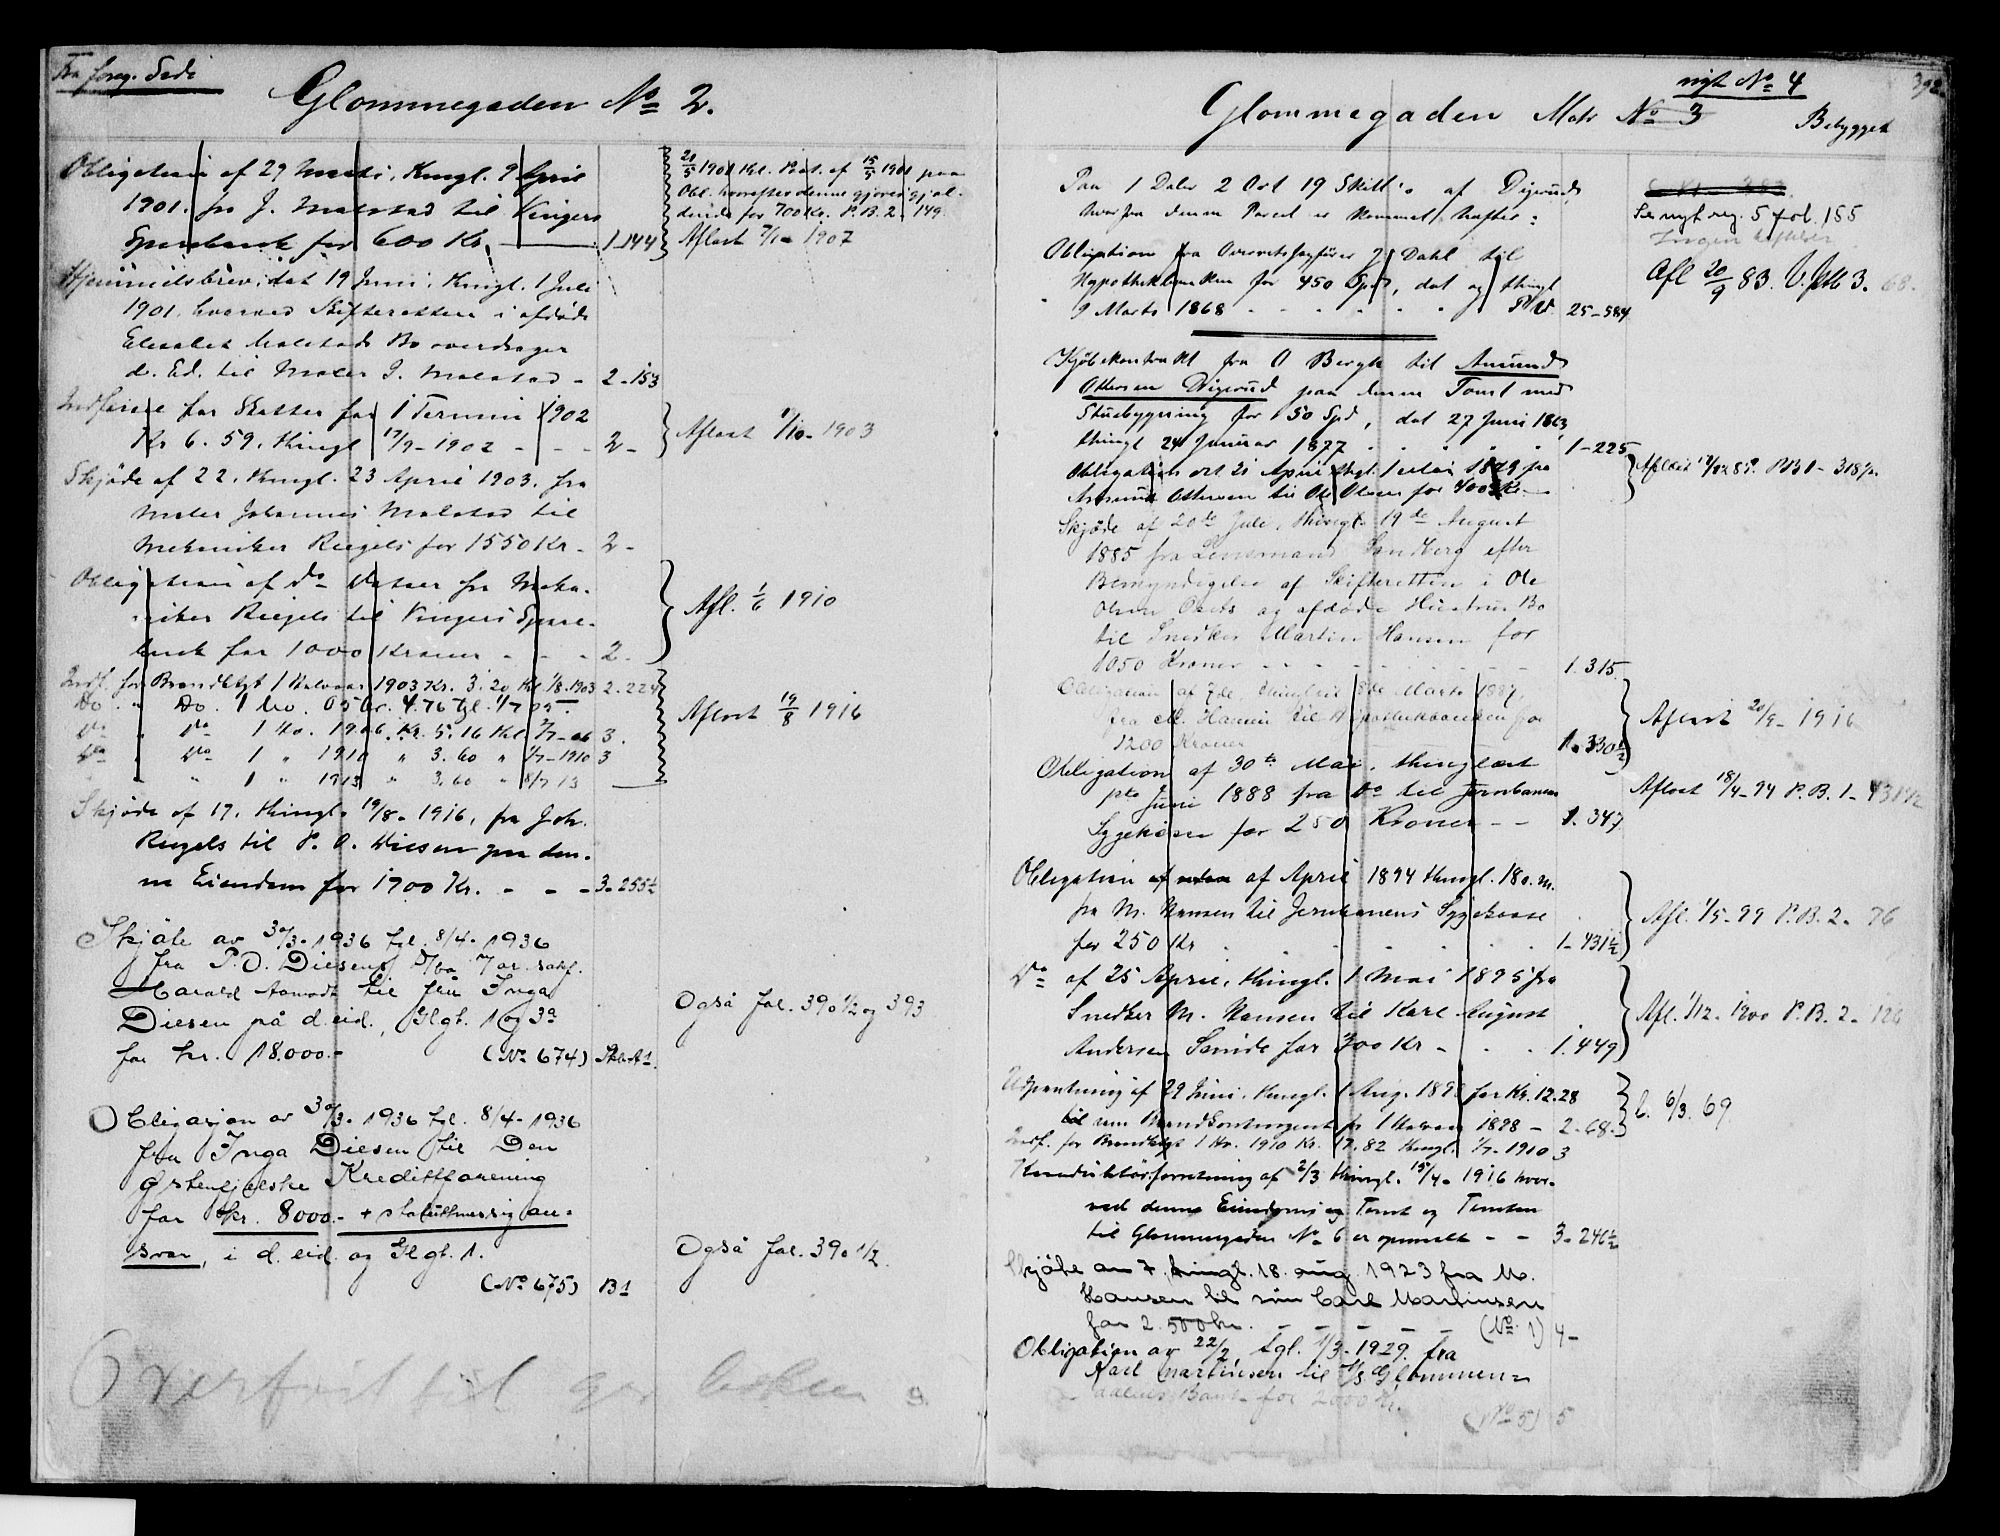 Fra foreg. Side
Glommegaden No 2.
Obligation af 29 Marts, thingl. 9 April
1901. fra J. Malstad til Vingers
Sparebank for 600 Kr. 1-144
21/5 1901 thl. Påt. af 15/5 1901 paa
Obl. hvorefter denne gjøres gjæl-
dende for 700 Kr. P.B. 2 - 149
Aflæst 1907
Hjemmelsbrev, dat 19 Juni, thingl. 1 Juli
1901, hvorved Skifteretten i afdøde
Malstads Bo overdrager
d. Ed. til Maler J. Malstad - 2-153
Indførsel for Skatter for 1 Termin 1902
Kr 6.59, thingl 17/9-1902 - - - 2-
Aflæst 1/10-1903
Skjøde af 22, thingl. 23 April 1903, fra
Maler Johannes Malstad til
Mekaniker Riegels for 1550 Kr - 2-
Obligation af do Datoer fra Meka-
niker Riegels til Vingers Spare-
bank for 1000 Kroner - - - 2.
Afl. 1/6 1910
Indf. for Brandktgt 1 Halvaar 1903 Kr. 3.20 thl. 1/8 1903 2.224
Do. " Do. 1 Do. 05 Kr. 4.76 tgl. 1/7 05.
Do " Do 1 Do. 1906. Kr. 5.16 thl 7/7-06 3.
Do " Do 1 " 1910 " 3.60 " 1/7-1910 3
" 1 " 1913 " 3.60 " 8/7 13
Aflæst 19/8 1916
Skjøde af 17, thingl. 19/8-1916, fra Joh.
Riegels til P. O. Diesen paa den-
ne Eiendom for 1900 Kr. - - - 3-255½
Skjøte av 30/3-1936 tgl. 8/4-1936
fra P.O. Diesens
Harald til fru Inga
Diesen på d. eid., Glgt. 1 og 3a
for kr. 18.000.- (No 674)
Også fol. 390½ og 393
Obligasjon av 30/3-1936 tgl. 8/4-1936
fra Inga Diesen til Den
Østenfjelske Kredittforening
for kr. 8000.- + statuttmessig an-
svar, i d. eid. og Glgt. 1.
(No 675) B1
Også fol. 390 1/2.
Overført til boken
nyt No 4
392
Glommegaden Matr No 3 Bebygget
Paa 1 Daler 2 Ort 19 Skill. af Digerud,
hvorfra denne Parcel er kommet, hæfter:
Se nyt reg. 5 fol. 155
Ingen hæftelser
Obligation fra Overretssagfører J. Dahl til
Hypothekbanken for 450 Spd, dat og thingl
9 Marts 1868 - - - - - 25-584
Afl 20/9 83. 3. 68.
Kjøbekontrakt fra O Bergh til Amund
Ottersen Digerud paa denne Tomt med
Stuebygning for 150 Spd, dat 27 Juni 1863,
thingl 24 Januar 1877 1-225
Obligation dat 21 April thgl. 1 Mai 1879 fra
Amund Ottersen til Ole Olsen for 400 Kr.
P.B. 1 - 318
Skjøde af 20de Juli, thingl. 19de August
1885 fra Lensmand Sandberg efter
Bemyndigelse af Skifteretten i Ole
Olsen og afdøde Hustrus Bo
til Snedker Martin Hansen for
1050 Kroner - - - 1.315.
Obligation af 7de, thinglæst 8de Marts 1887,
fra M. Hansen til Hypothekbanken for
1200 Kroner 1.330½
Aflæst 20/9-1916
Obligation af 30te Mai, thinglæst
Juni 1888 fra Do til Jernbanens
Sygekasse for 250 Kroner - - 1.347
Aflæst 18/4-94 P.B. 1-431½
Obligation af April 1894 thingl. 18 d. M.
fra M. Hansen til Jernbanens Sygekasse
for 250 Kr 1-431½
Afl. 1/5-99 P.B. 2-76
Do af 25 April, thingl. 1 Mai 1895 fra
Snedker M. Hansen til Karl August
Andersen for 300 Kr - 1.449
Afl. 1/12-1900 P.B. 2-126
Udpantning af 29 Juni, thingl. 1 Aug. 1898 for Kr. 12.28
Brandkontingent for 1 Halvaar 1898 - 2-68-
Indf. for Brandktgt 1 Hv. 1910 Kr. 12.82 thingl. 1/7-1910 3
6/3. 69.
Konduktørforretning af 2/3 thingl. 15/4-1916 hvor-
ved denne Eiendoms Tomt og Tomten
til Glommegaden No 6 er opmaalt - - 3-246½
Skjøte av 7. tingl. 18. aug. 1923 fra M.
Hansen til søn Carl Martinsen
for 2.500 kr. - - - - (No 1) 4-
Obligation av 22/2 tgl. 1/3-1929. fra
Karl Martinsen til A/S Glommen-
dalens Bank for 2000 kr.
(No 5) 5